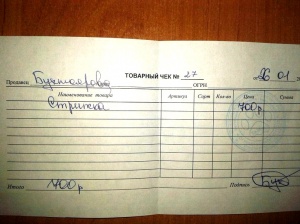 ТОВАРНЫЙ ЧЕК № 27 26 01
Продавец ОГРН
Наименование товара Артикул Сорт Кол-во Цена Сумма
Стрижка 700р
Итого 700р Подпись